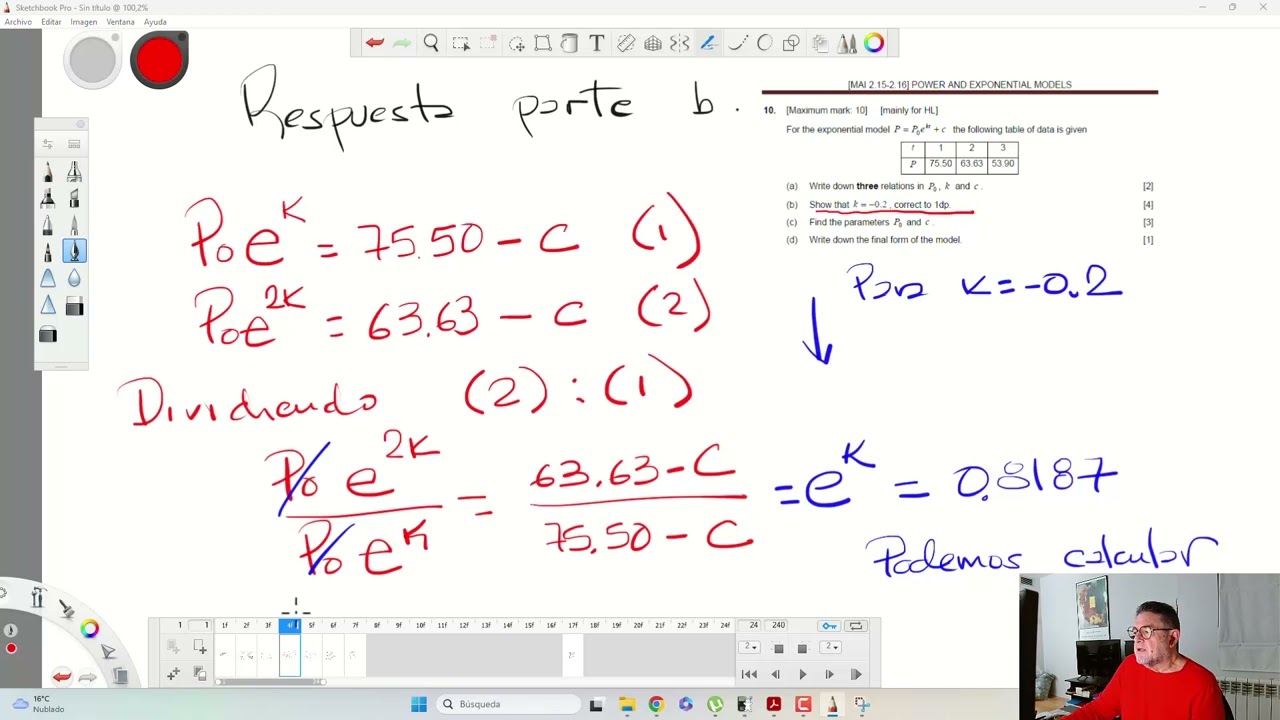 Sketchbook Pro - Sin título @ 100,2%
Archivo Editar Imagen Ventana Ayuda
Respuesta parte b.
[MAI 2.15-2.16] POWER AND EXPONENTIAL MODELS
10. [Maximum mark: 10] [mainly for HL]
For the exponential model P = P₀eᵏᵗ + c the following table of data is given
t 1 2 3
P 75.50 63.63 53.90
(a) Write down three relations in P₀, k and c. [2]
(b) Show that k = −0.2, correct to 1dp. [4]
(c) Find the parameters P₀ and c. [3]
(d) Write down the final form of the model. [1]
P₀e^K = 75.50 - C (1)
P₀e^2K = 63.63 - C (2)
Para K = -0.2
Dividiendo (2) : (1)
P₀ e^2K / P₀ e^K = 63.63 - C / 75.50 - C = e^K = 0.8187
Podemos calcular
1 1 1f 2f 3f 4f 5f 6f 7f 8f 9f 10f 11f 12f 13f 14f 15f 16f 17f 18f 19f 20f 21f 22f 23f 24f 24 240
2 2
16°C
Nublado
Búsqueda